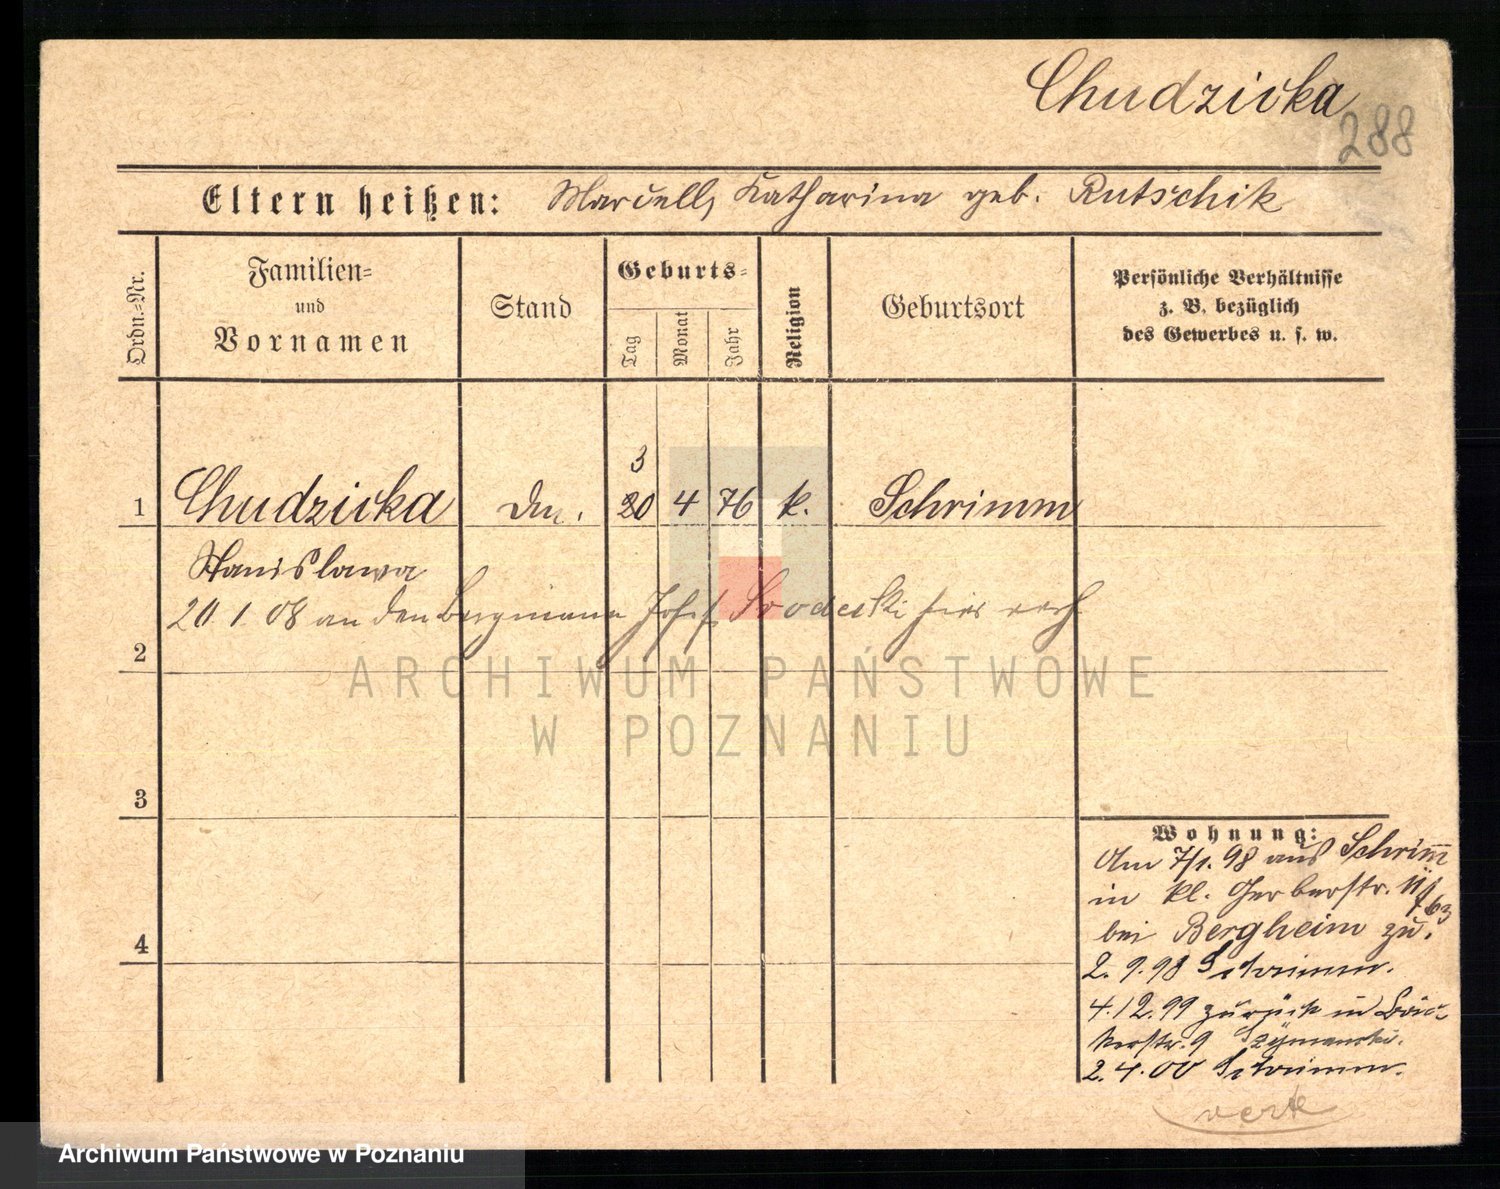 Chudzicka
288
Eltern heißen: Marcell, Katharina geb. Rutschik
Ordn.-Nr.
Familien-
und
Vornamen
Stand
Geburts-
Tag
Monat
Jahr
Religion
Geburtsort
Persönliche Verhältnisse
z. B. bezüglich
des Gewerbes u. s. w.
3
1 Chudzicka 20 4 76 k. Schrimm
Stanislawa
20. 1. 08 an den Bergmann Josef hier verh
2
ARCHIWUM PAŃSTWOWE
W POZNANIU
3
4
Wohnung:
Am 7/1. 98 aus Schrimm
in kl. Gerberstr. 11
63
bei Bergheim zu.
2. 9. 98 Schrimm.
4. 12. 99 zurück in Bäc-
kerstr. 9 Szymanski.
2. 4. 00 Schrimm.
verte
Archiwum Państwowe w Poznaniu